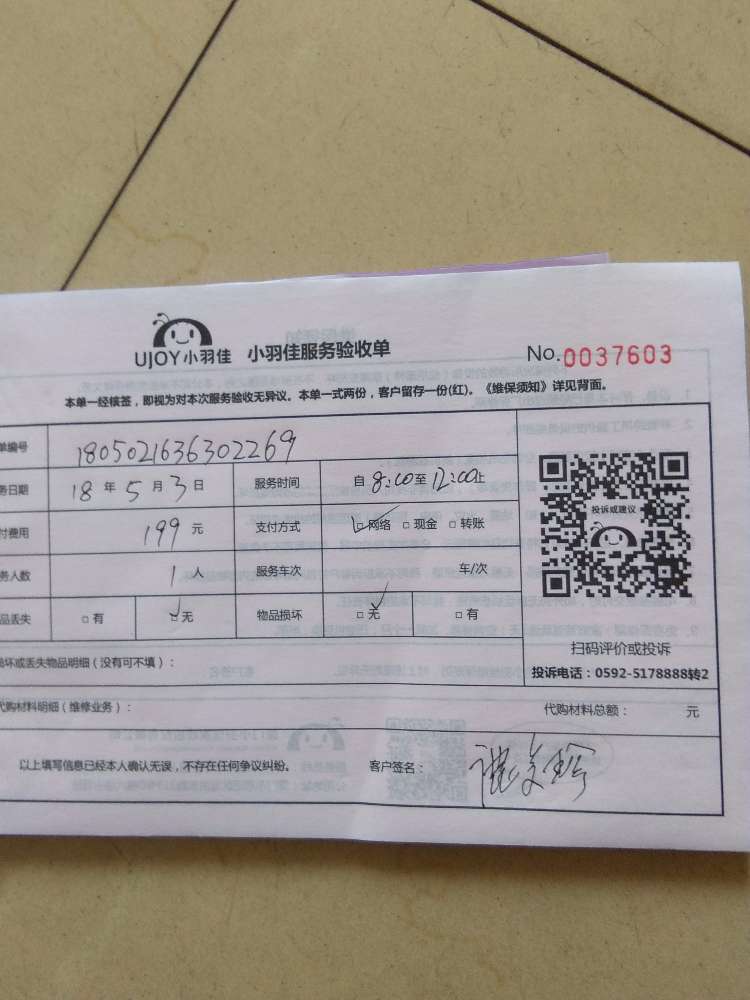 UJOY小羽佳 小羽佳服务验收单 No.0037603
本单一经核签，即视为对本次服务验收无异议。本单一式两份，客户留存一份(红)。《维保须知》详见背面。
单编号 1805021636302269
务日期 18年5月3日 服务时间 自8:00至12:00止
付费用 199元 支付方式 网络 现金 转账
务人数 1人 服务车次 车/次
品丢失 有 无 物品损坏 无 有
投诉或建议
扫码评价或投诉
投诉电话：0592-5178888转2
损坏或丢失物品明细（没有可不填）：
代购材料明细（维修业务）： 代购材料总额： 元
以上填写信息已经本人确认无误，不存在任何争议纠纷。 客户签名：